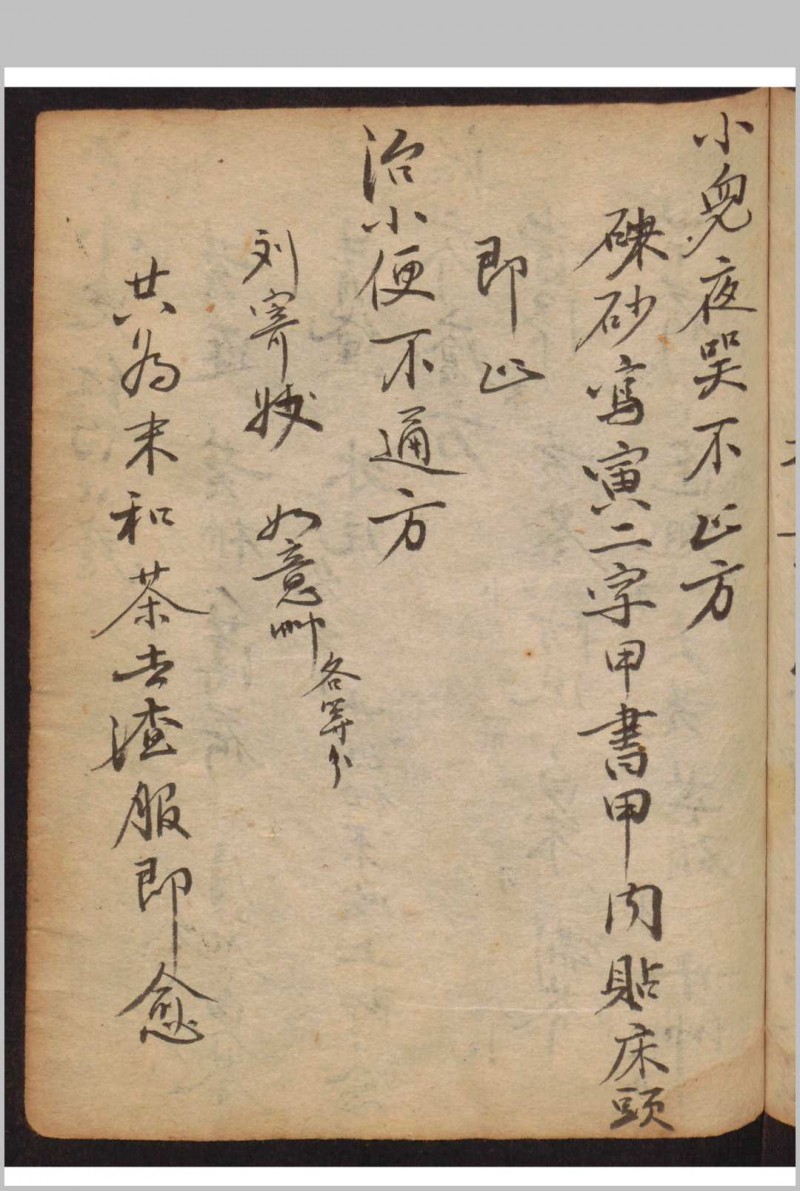 小兒夜哭不止方
硃砂寫寅二字甲書甲內貼床頭
即止
治小便不通方
刘寄妙 如意艸 各等分
共為末和茶去渣服即愈